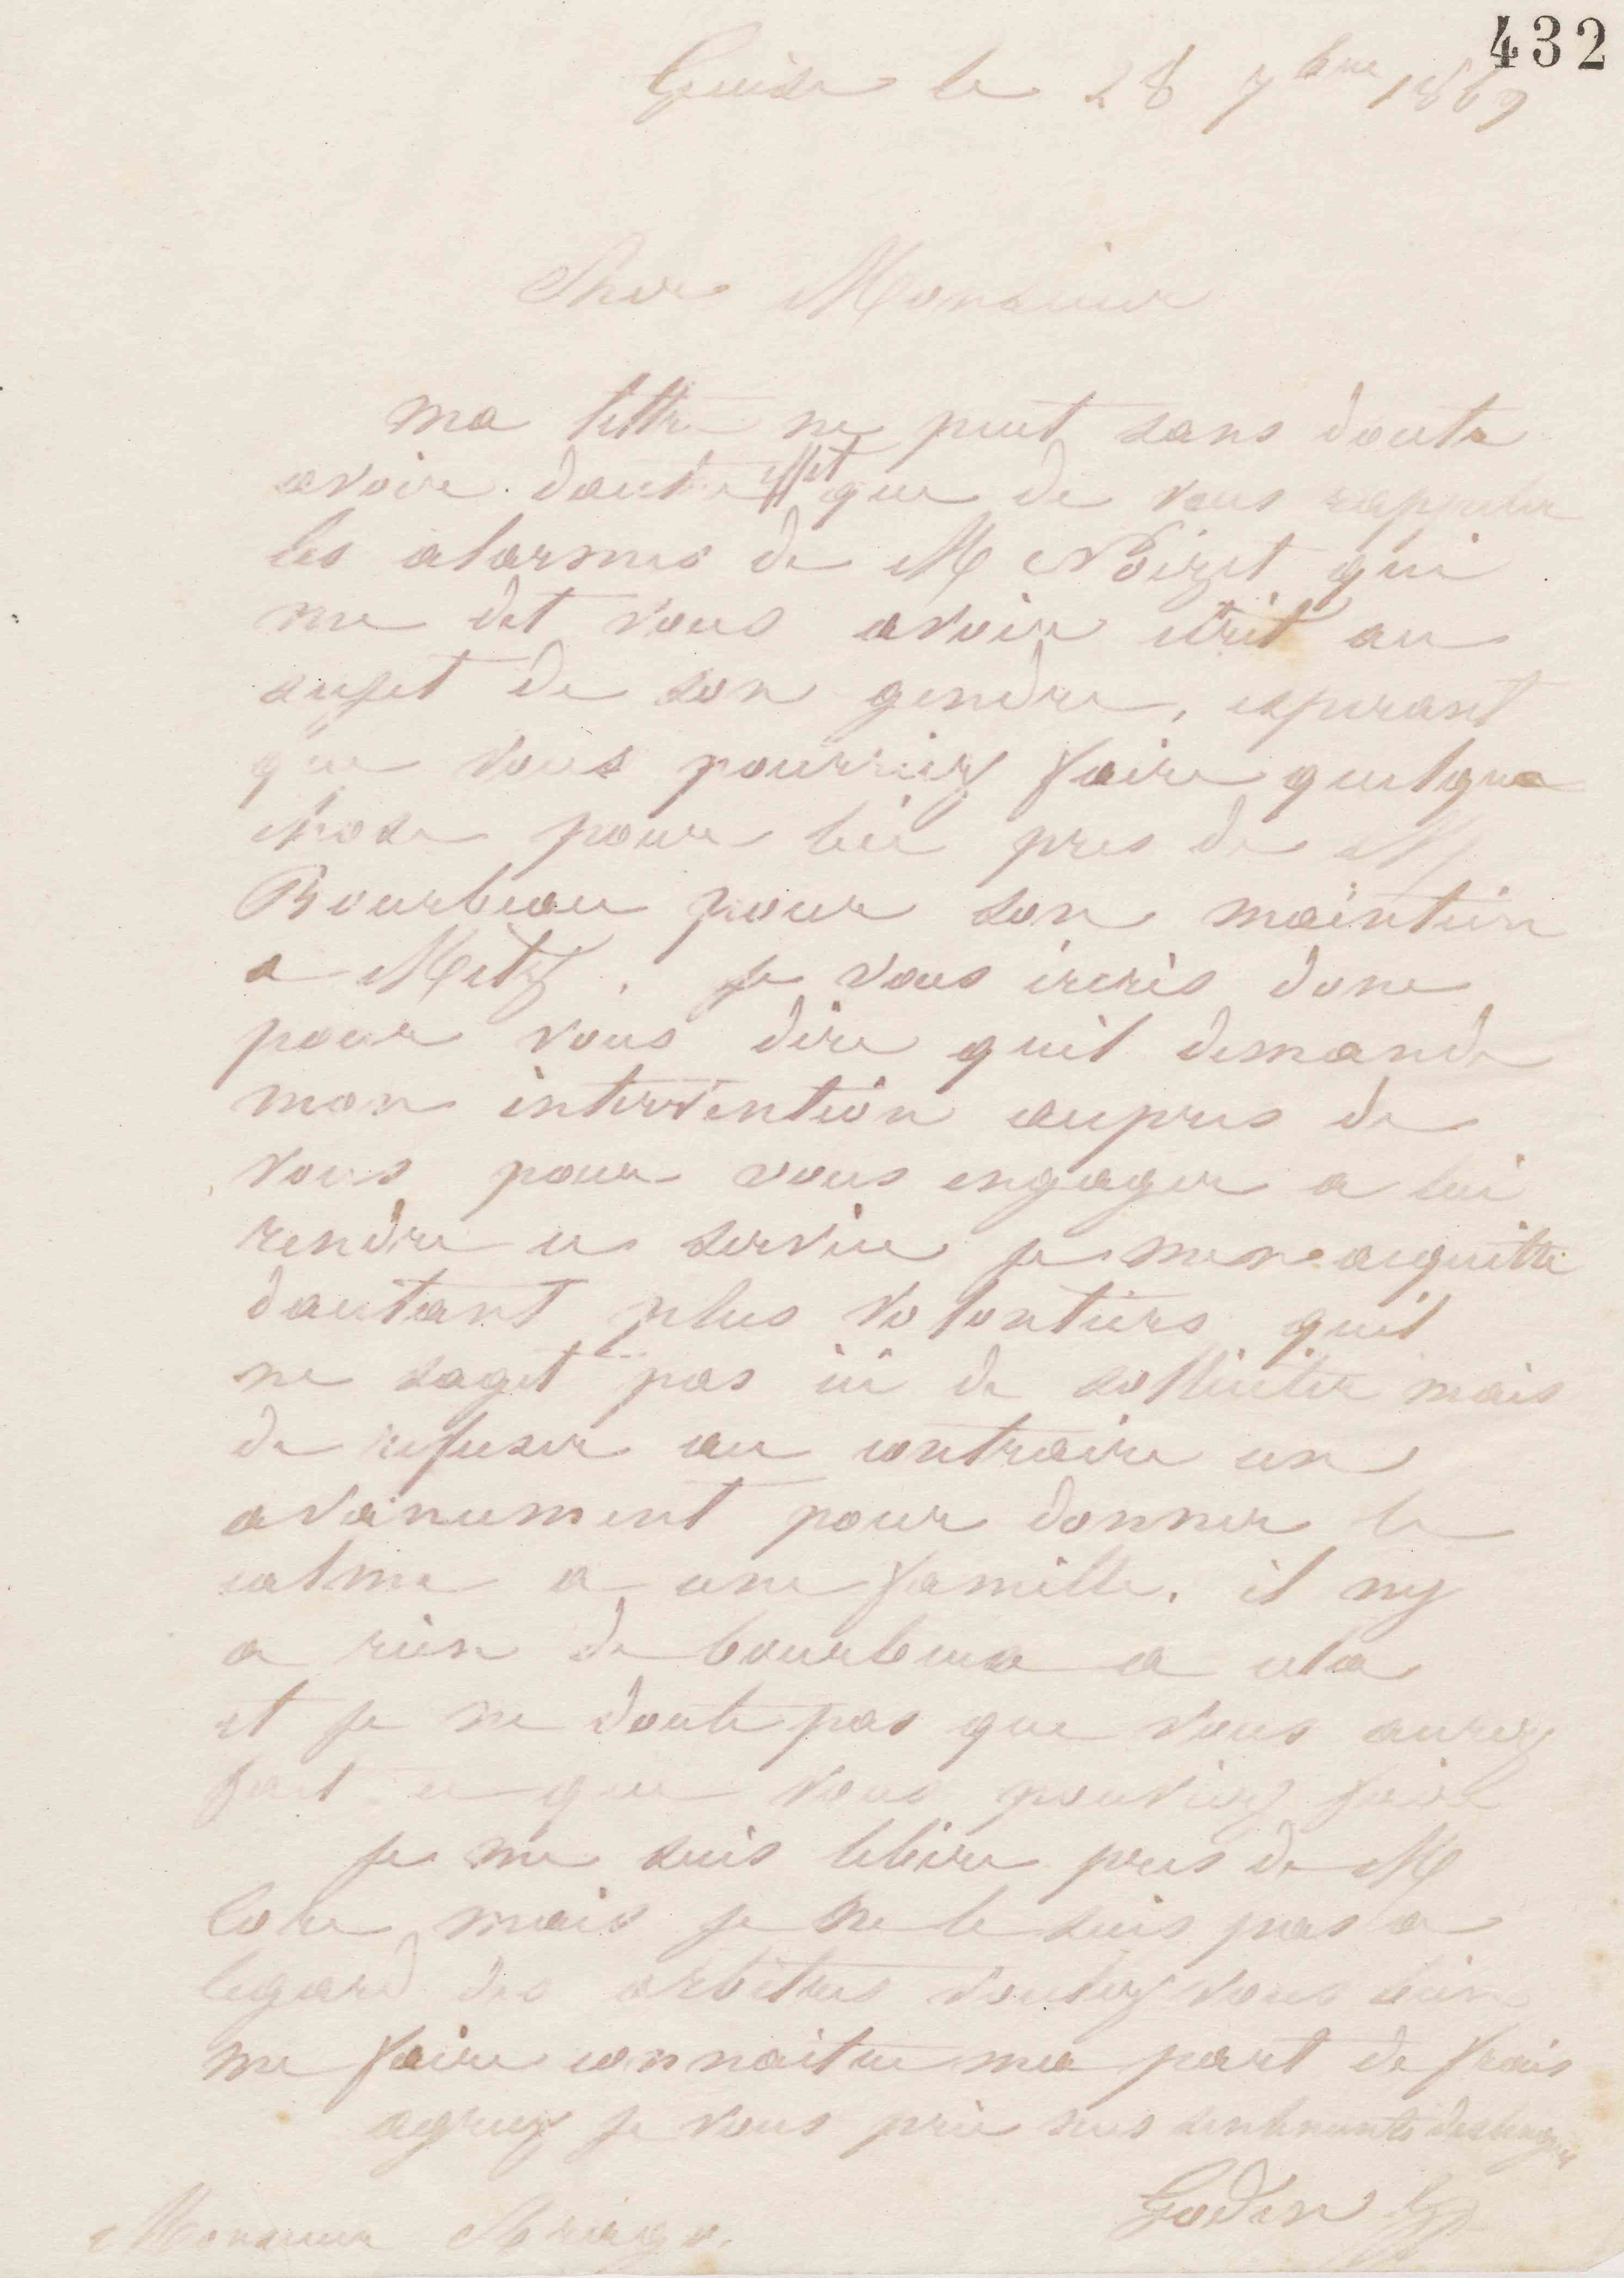 432
Guise le 28 7bre 1869
Cher Monsieur
ma lettre ne peut sans doute
avoir dautre effet que de vous rappeler
les alarmes de M Noizet qui
me dit vous avoir ecrit au
sujet de son gendre, esperant
que vous pourriez faire quelque
chose pour lui pres de M
Bourbeau pour son maintien
a Metz. je vous ecris donc
pour vous dire quil demande
mon intervention aupres de
vous pour vous engager a lui
rendre ce service je men acquitte
dautant plus volontiers quil
ne sagit pas ici de solliciter mais
de refuser au contraire un
avancement pour donner le
calme a une famille. il ny
a rien de a cela
et je ne doute pas que vous aurez
fait ce que vous pouviez faire
je me suis libere pres de M
mais je ne le suis pas a
legard des arbitres voulez vous bien
me faire connaitre ma part de frais
agreez je vous prie mes sentiments
Godin
Monsieur